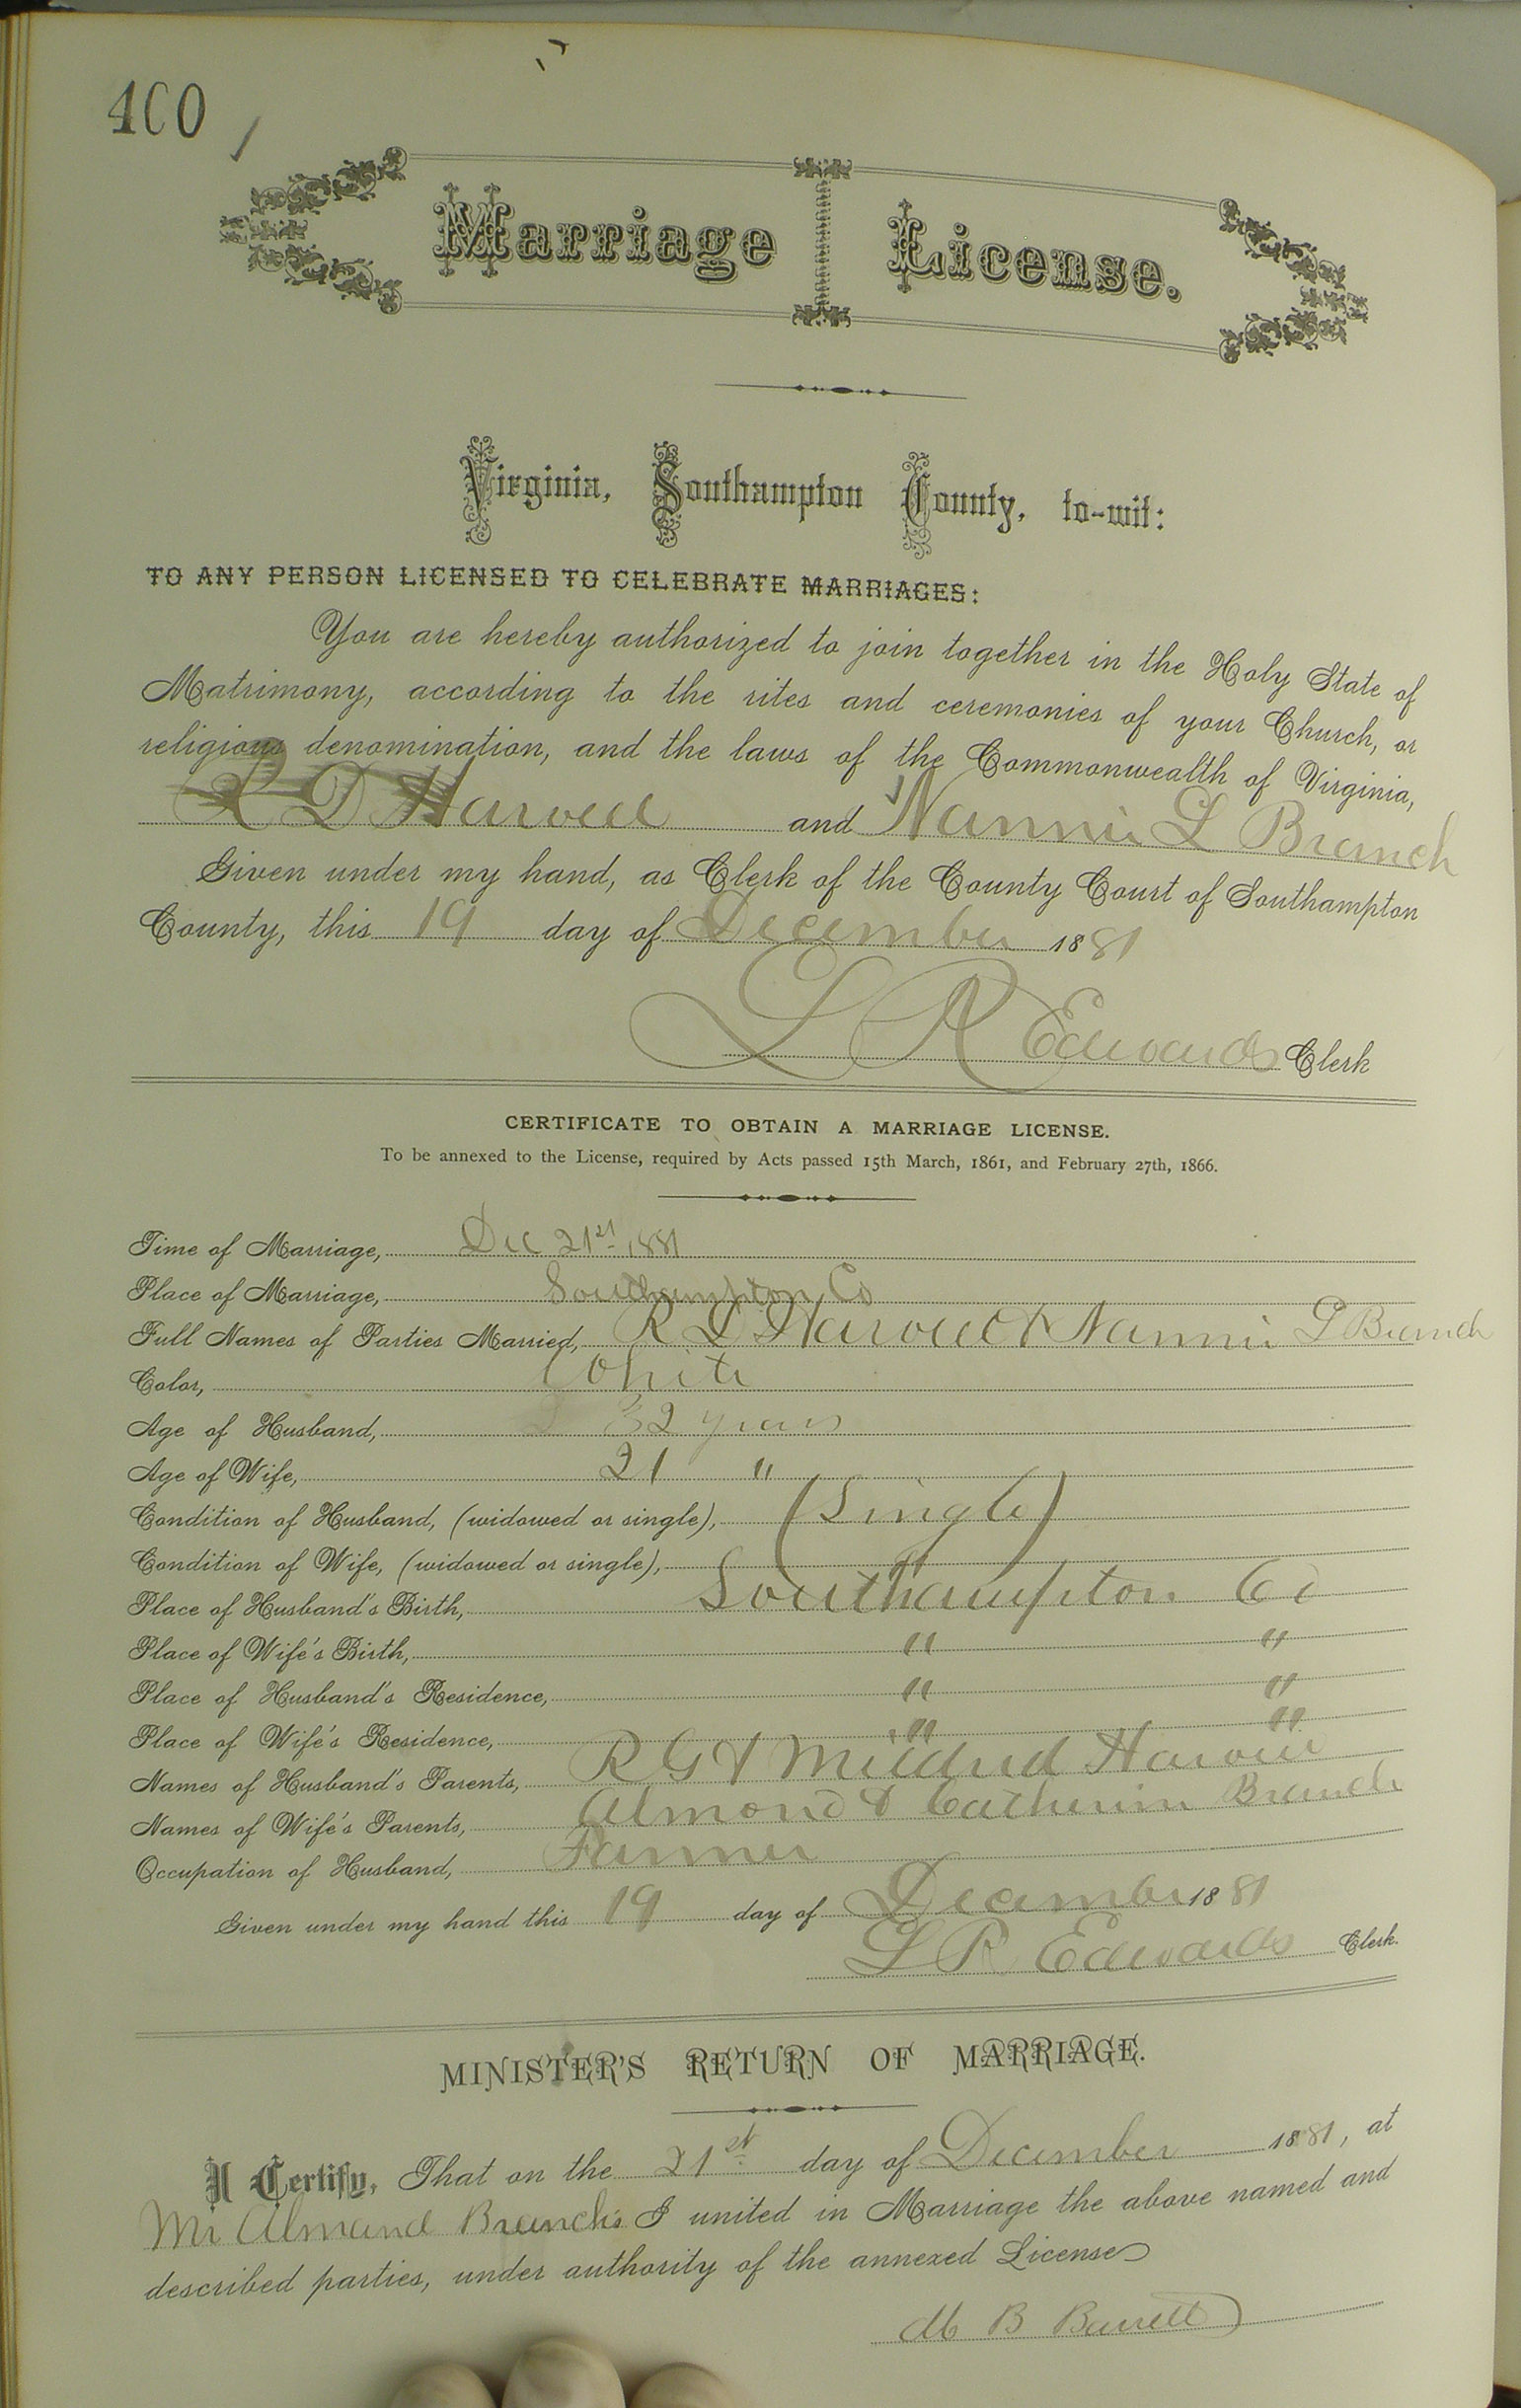 400
Marriage License.
Virginia, Southampton County, to-wit:
TO ANY PERSON LICENSED TO CELEBRATE MARRIAGES:
You are hereby authorized to join together in the Holy State of
Matrimony, according to the rites and ceremonies of your Church, or
religious denomination, and the laws of the Commonwealth of Virginia,
R D Harvell and Nannie L Branch
Given under my hand, as Clerk of the County Court of Southampton
County, this 19 day of December 1881
L R Edwards Clerk
CERTIFICATE TO OBTAIN A MARRIAGE LICENSE.
To be annexed to the License, required by Acts passed 15th March, 1861, and February 27th, 1866.
Time of Marriage, Dec 21st 1881
Place of Marriage, Southampton Co
Full Names of Parties Married, R D Harvell & Nannie L Branch
Color, White
Age of Husband, 32 years
Age of Wife, 21 "
Condition of Husband, (widowed or single), (Single)
Condition of Wife, (widowed or single),
Place of Husband's Birth, Southampton Co
Place of Wife's Birth, " "
Place of Husband's Residence, " "
Place of Wife's Residence, " "
Names of Husband's Parents, R G & Mildred Harvell
Names of Wife's Parents, Almond & Catherine Branch
Occupation of Husband, Farmer
Given under my hand this 19 day of December 1881
L R Edwards Clerk.
MINISTER'S RETURN OF MARRIAGE.
I Certify, That on the 21st day of December 1881, at
Mr Almand Branch's I united in Marriage the above named and
described parties, under authority of the annexed License
B Barrett